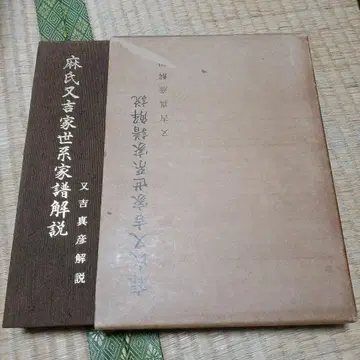 麻氏又吉家世系家譜解説
又吉真彦解説
麻氏又吉家世系家譜解説
又吉真彦解説